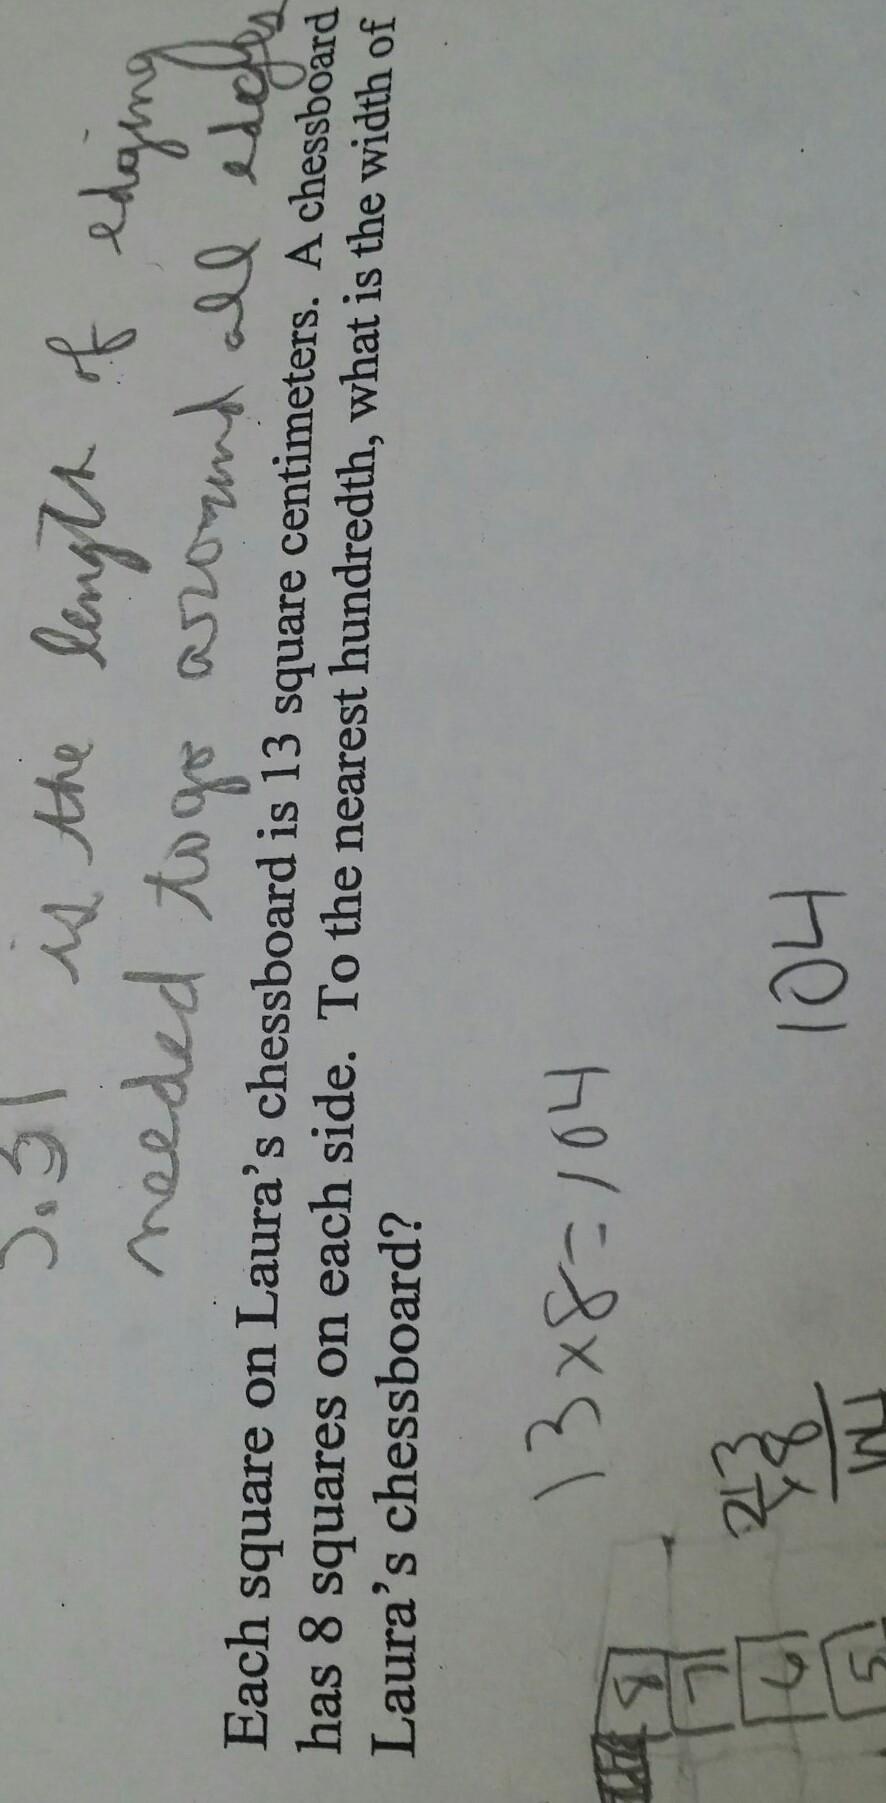 is the length of edging
needed to go around all edges
Each square on Laura's chessboard is 13 square centimeters. A chessboard
has 8 squares on each side. To the nearest hundredth, what is the width of
Laura's chessboard?
13 x 8 = 104
8
7
6
5
x 8
104